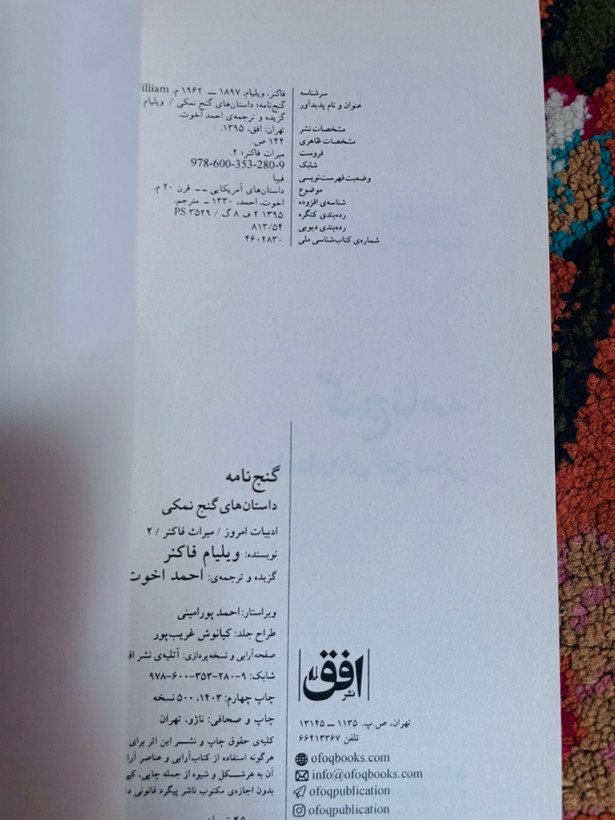 سرشناسه فاکنر، ویلیام، ۱۸۹۷ — ۱۹۶۲ م. William
عنوان و نام پدیدآور گنج‌نامه: داستان‌های گنج نمکی / ویلیام
گزیده و ترجمه‌ی احمد اخوت.
مشخصات نشر تهران: افق، ۱۳۹۵.
مشخصات ظاهری ۱۴۴ ص.
فروست میراث فاکنر؛ ۲.
شابک 978-600-353-280-9
وضعیت فهرست‌نویسی فیپا
موضوع داستان‌های آمریکایی -- قرن ۲۰ م.
شناسه‌ی افزوده اخوت، احمد، ۱۳۳۰ — مترجم.
رده‌بندی کنگره ۱۳۹۵ ۲ ف ۸ گ / PS ۳۵۲۹
رده‌بندی دیویی ۸۱۳/۵۴
شماره‌ی کتاب‌شناسی ملی ۴۶۰۲۸۳۰
گنج‌نامه
داستان‌های گنج نمکی
ادبیات امروز / میراث فاکنر / ۲
نویسنده: ویلیام فاکنر
گزیده و ترجمه‌ی: احمد اخوت
ویراستار: احمد پورامینی
طراح جلد: کیانوش غریب‌پور
صفحه‌آرایی و نسخه‌پردازی: آتلیه‌ی نشر
شابک: ۹-۲۸۰-۳۵۳-۶۰۰-۹۷۸
چاپ چهارم: ۱۴۰۳، ۵۰۰ نسخه
چاپ و صحافی: ناژو، تهران
کلیه‌ی حقوق چاپ و نشر این اثر برای
هرگونه استفاده از کتاب‌آرایی و عناصر
آن به هر شکل و شیوه از جمله چاپی،
بدون اجازه‌ی مکتوب ناشر پیگرد قانونی
نشر افق
تهران، ص.پ. ۱۱۳۵ — ۱۳۱۴۵
تلفن ۶۶۴۱۳۳۶۷
ofoqbooks.com
info@ofoqbooks.com
ofoqpublication
ofoqpublication